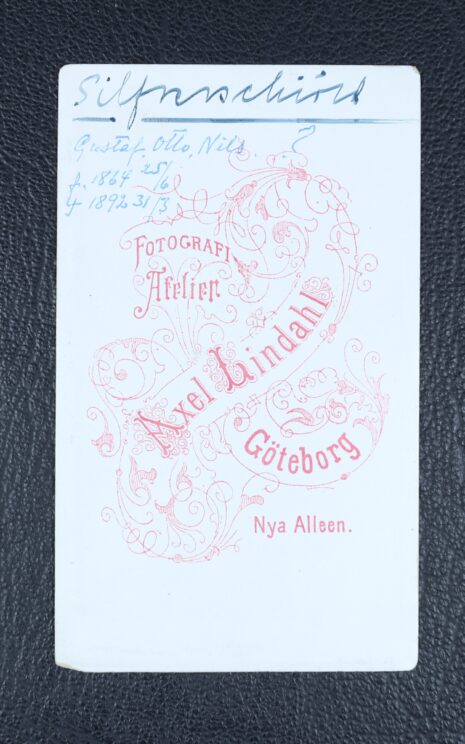 Silfverschiöld
Gustaf, Otto, Nils. ?
f. 1864 25/6
† 1892 31/3
FOTOGRAFI
Atelier
Axel Lindahl
Göteborg
Nya Alleen.